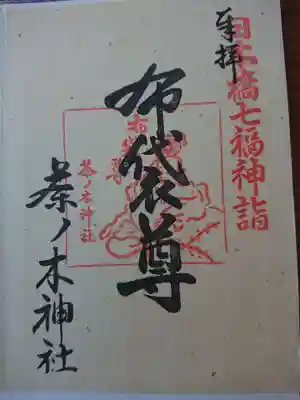 日本橋七福神詣
奉拝
布袋尊
布袋尊
茶ノ木神社
茶ノ木神社